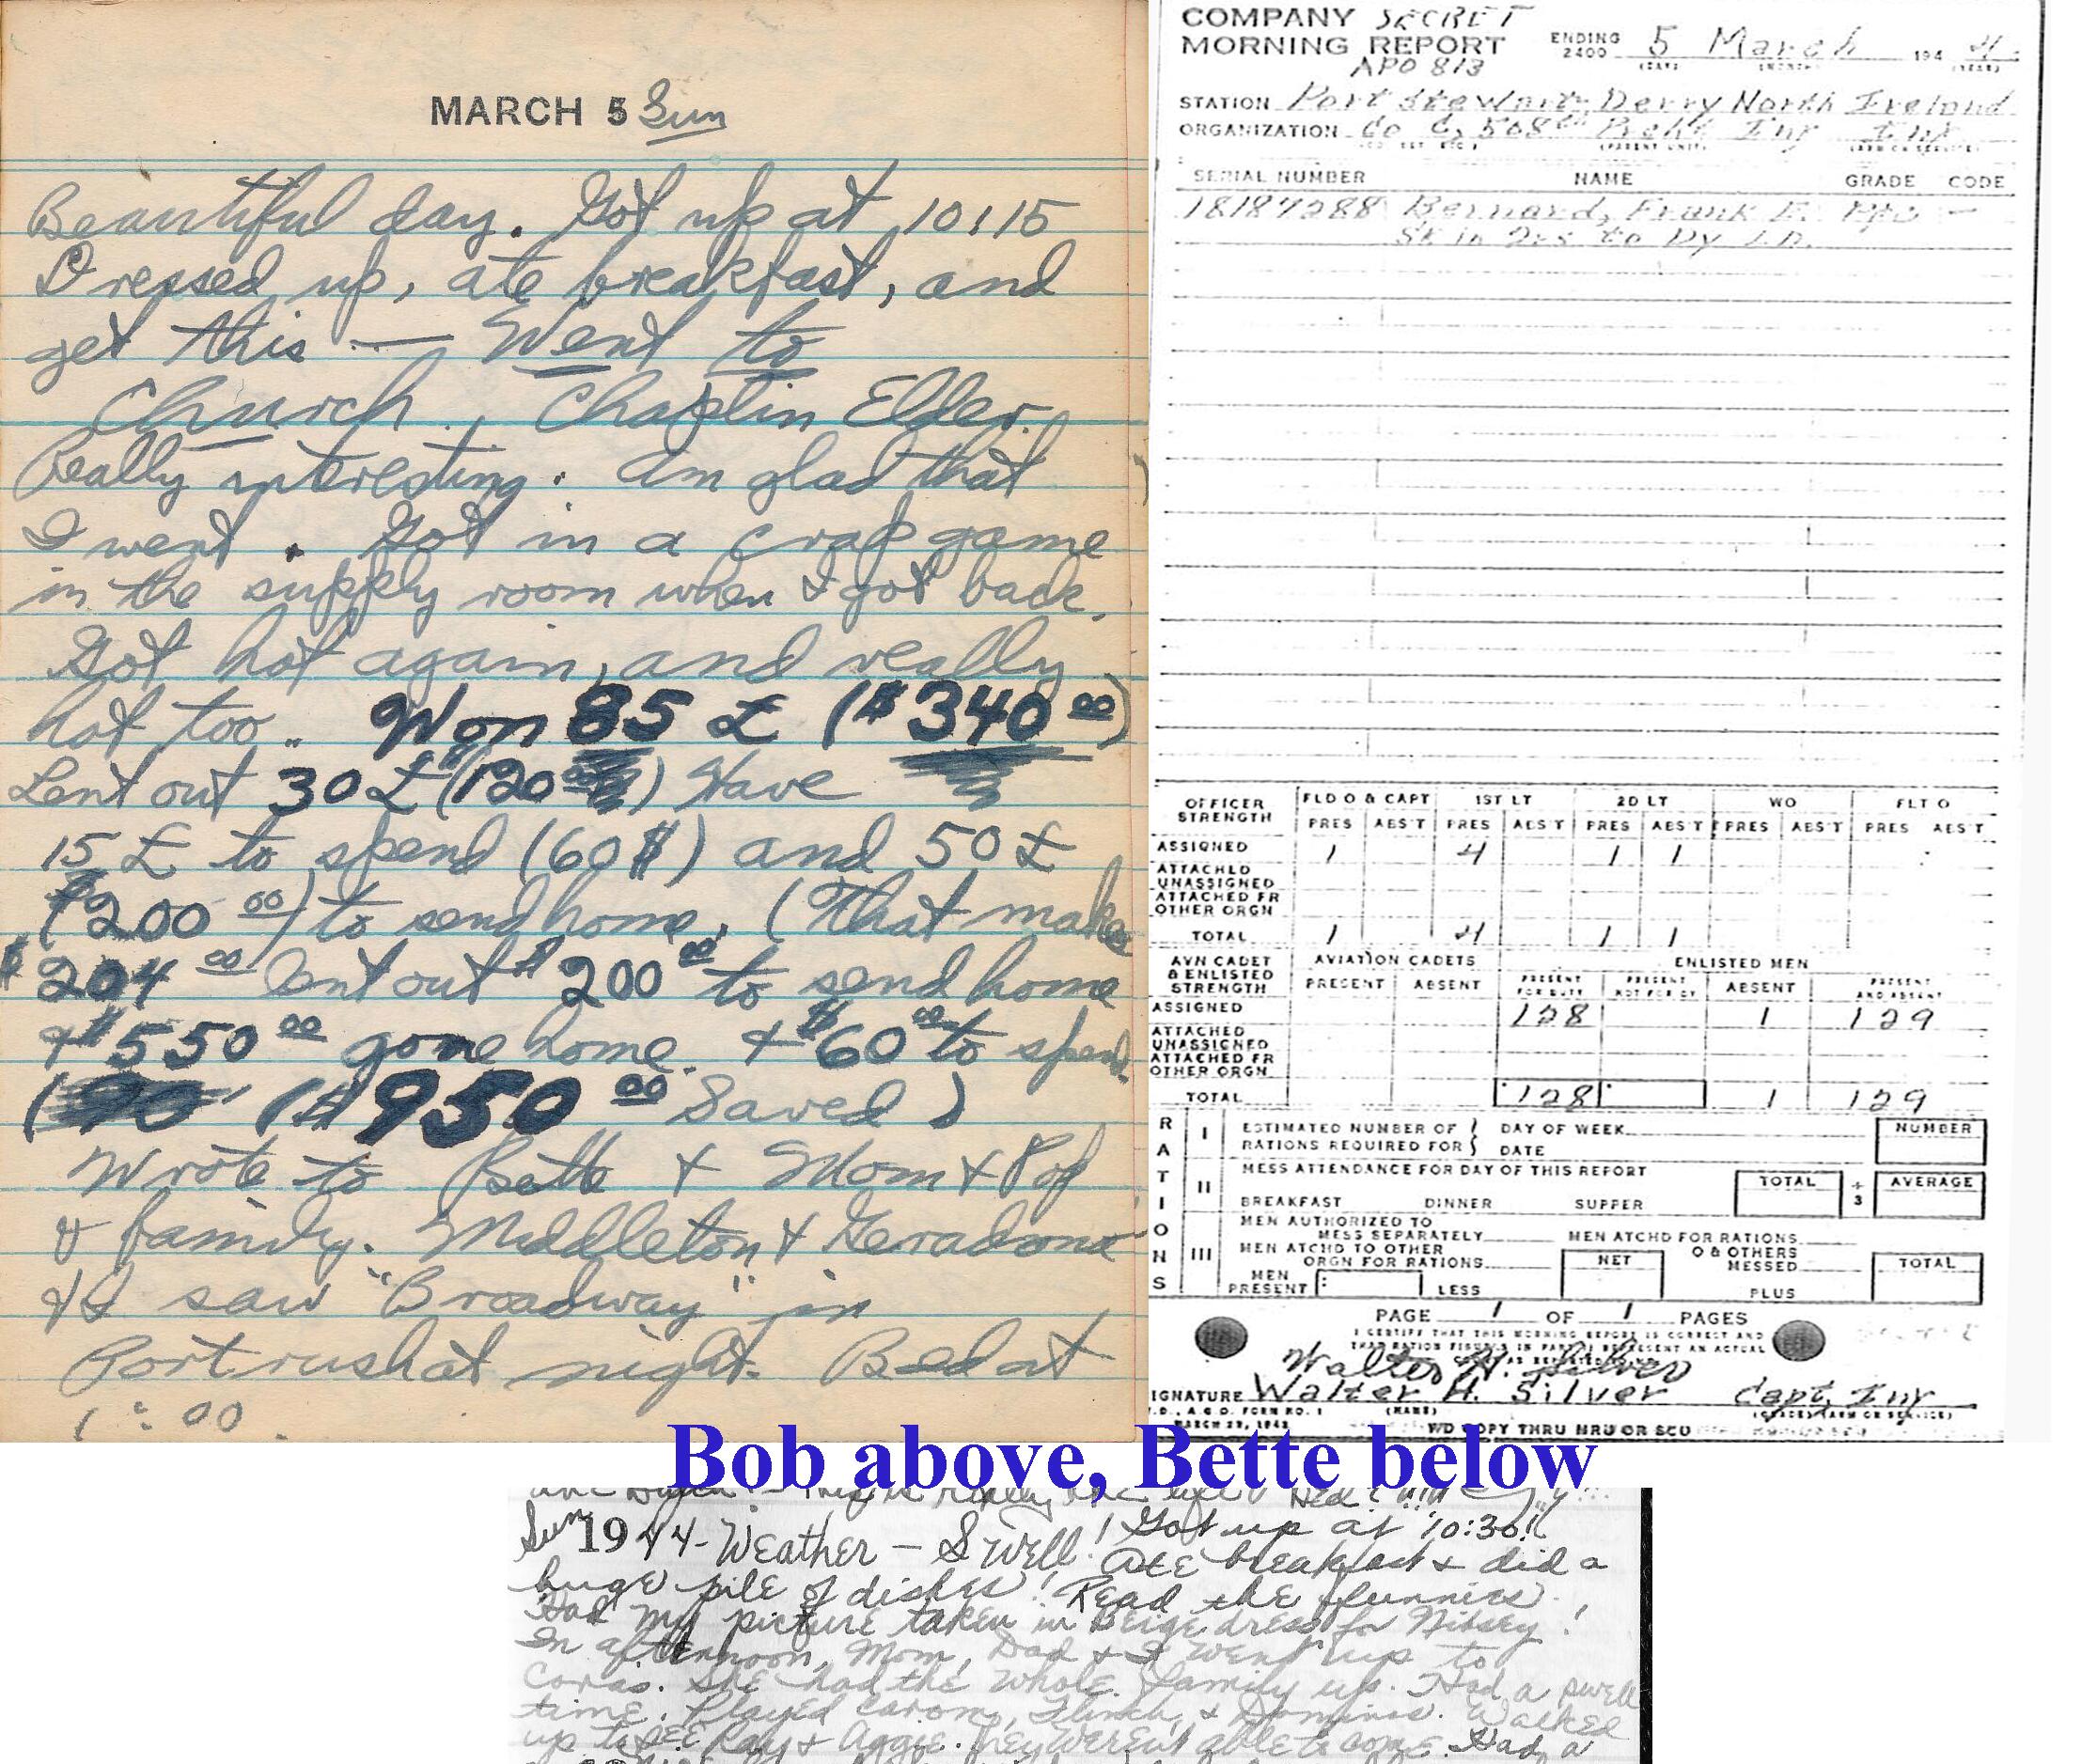 MARCH 5 Sun
Beautiful day. Got up at 10:15
Dressed up, ate breakfast, and
get this — Went to
Church. Chaplin Elder.
Really interesting. Am glad that
I went. Got in a crap game
in the supply room when I got back.
Got hot again, and really
hot too.. Won 85 £ ($340 00)
Lent out 30 £ ($120 00) Have
15 £ to spend (60 $) and 50 £
($200 00) to send home. (That makes
$204 00 lent out $200 00 to send home
+ $550 00 gone home. + $60 00 to spend.
($950 00 Saved)
Wrote to Bette + Mom + Pop
& family. Middleton + Geradona
+ I saw "Broadway" in
Portrush at night. Bed at
1:00.
COMPANY SECRET
MORNING REPORT
APO 813
ENDING 2400 5 March 194 4
(DAY) (MONTH) (YEAR)
STATION Port Stewart, Derry North Ireland
ORGANIZATION Co C, 508th Prcht Inf Inf
(PARENT UNIT) (ARM OR SERVICE)
SERIAL NUMBER NAME GRADE CODE
18187288 Bernard, Frank E. Pfc —
Sk in to Dy
OFFICER STRENGTH FLD O & CAPT 1ST LT 2D LT WO FLT O
PRES ABS'T PRES ABS'T PRES ABS'T PRES ABS'T PRES ABS'T
ASSIGNED 1 4 1 1
ATTACHED
UNASSIGNED
ATTACHED FR
OTHER ORGN
TOTAL 1 4 1 1
AVN CADET & ENLISTED STRENGTH AVIATION CADETS ENLISTED MEN
PRESENT ABSENT PRESENT FOR DUTY PRESENT NOT FOR DY ABSENT PRESENT AND ABSENT
ASSIGNED 128 1 129
ATTACHED
UNASSIGNED
ATTACHED FR
OTHER ORGN
TOTAL 128 1 129
RATIONS
I ESTIMATED NUMBER OF RATIONS REQUIRED FOR DAY OF WEEK DATE NUMBER
II MESS ATTENDANCE FOR DAY OF THIS REPORT
BREAKFAST DINNER SUPPER TOTAL ÷ 3 AVERAGE
III MEN AUTHORIZED TO MESS SEPARATELY MEN ATCHD FOR RATIONS
MEN ATCHD TO OTHER ORGN FOR RATIONS O & OTHERS MESSED
MEN PRESENT LESS NET PLUS TOTAL
PAGE 1 OF 1 PAGES
I CERTIFY THAT THIS MORNING REPORT IS CORRECT AND
THAT RATION FIGURES IN PART REPRESENT AN ACTUAL
Walter H. Silver
SIGNATURE Walter H. Silver Capt, Inf
(NAME) (GRADE) (ARM OR SERVICE)
W.D., A.G.O. FORM NO. 1
MARCH 29, 1943
WD COPY THRU MRU OR SCU
Bob above, Bette below
Sun 1944 - Weather — Swell! Got up at 10:30!
Ate breakfast + did a
huge pile of dishes! Read the funnies.
Had my picture taken in Beige dress for Nibsey!
In afternoon, Mom, Dad + I went up to
Coras. She had the whole family up. Had a swell
time. Played carom, Flinch, + Dominos. Walked
up to see Ray + Aggie. They weren't able to come. Had a